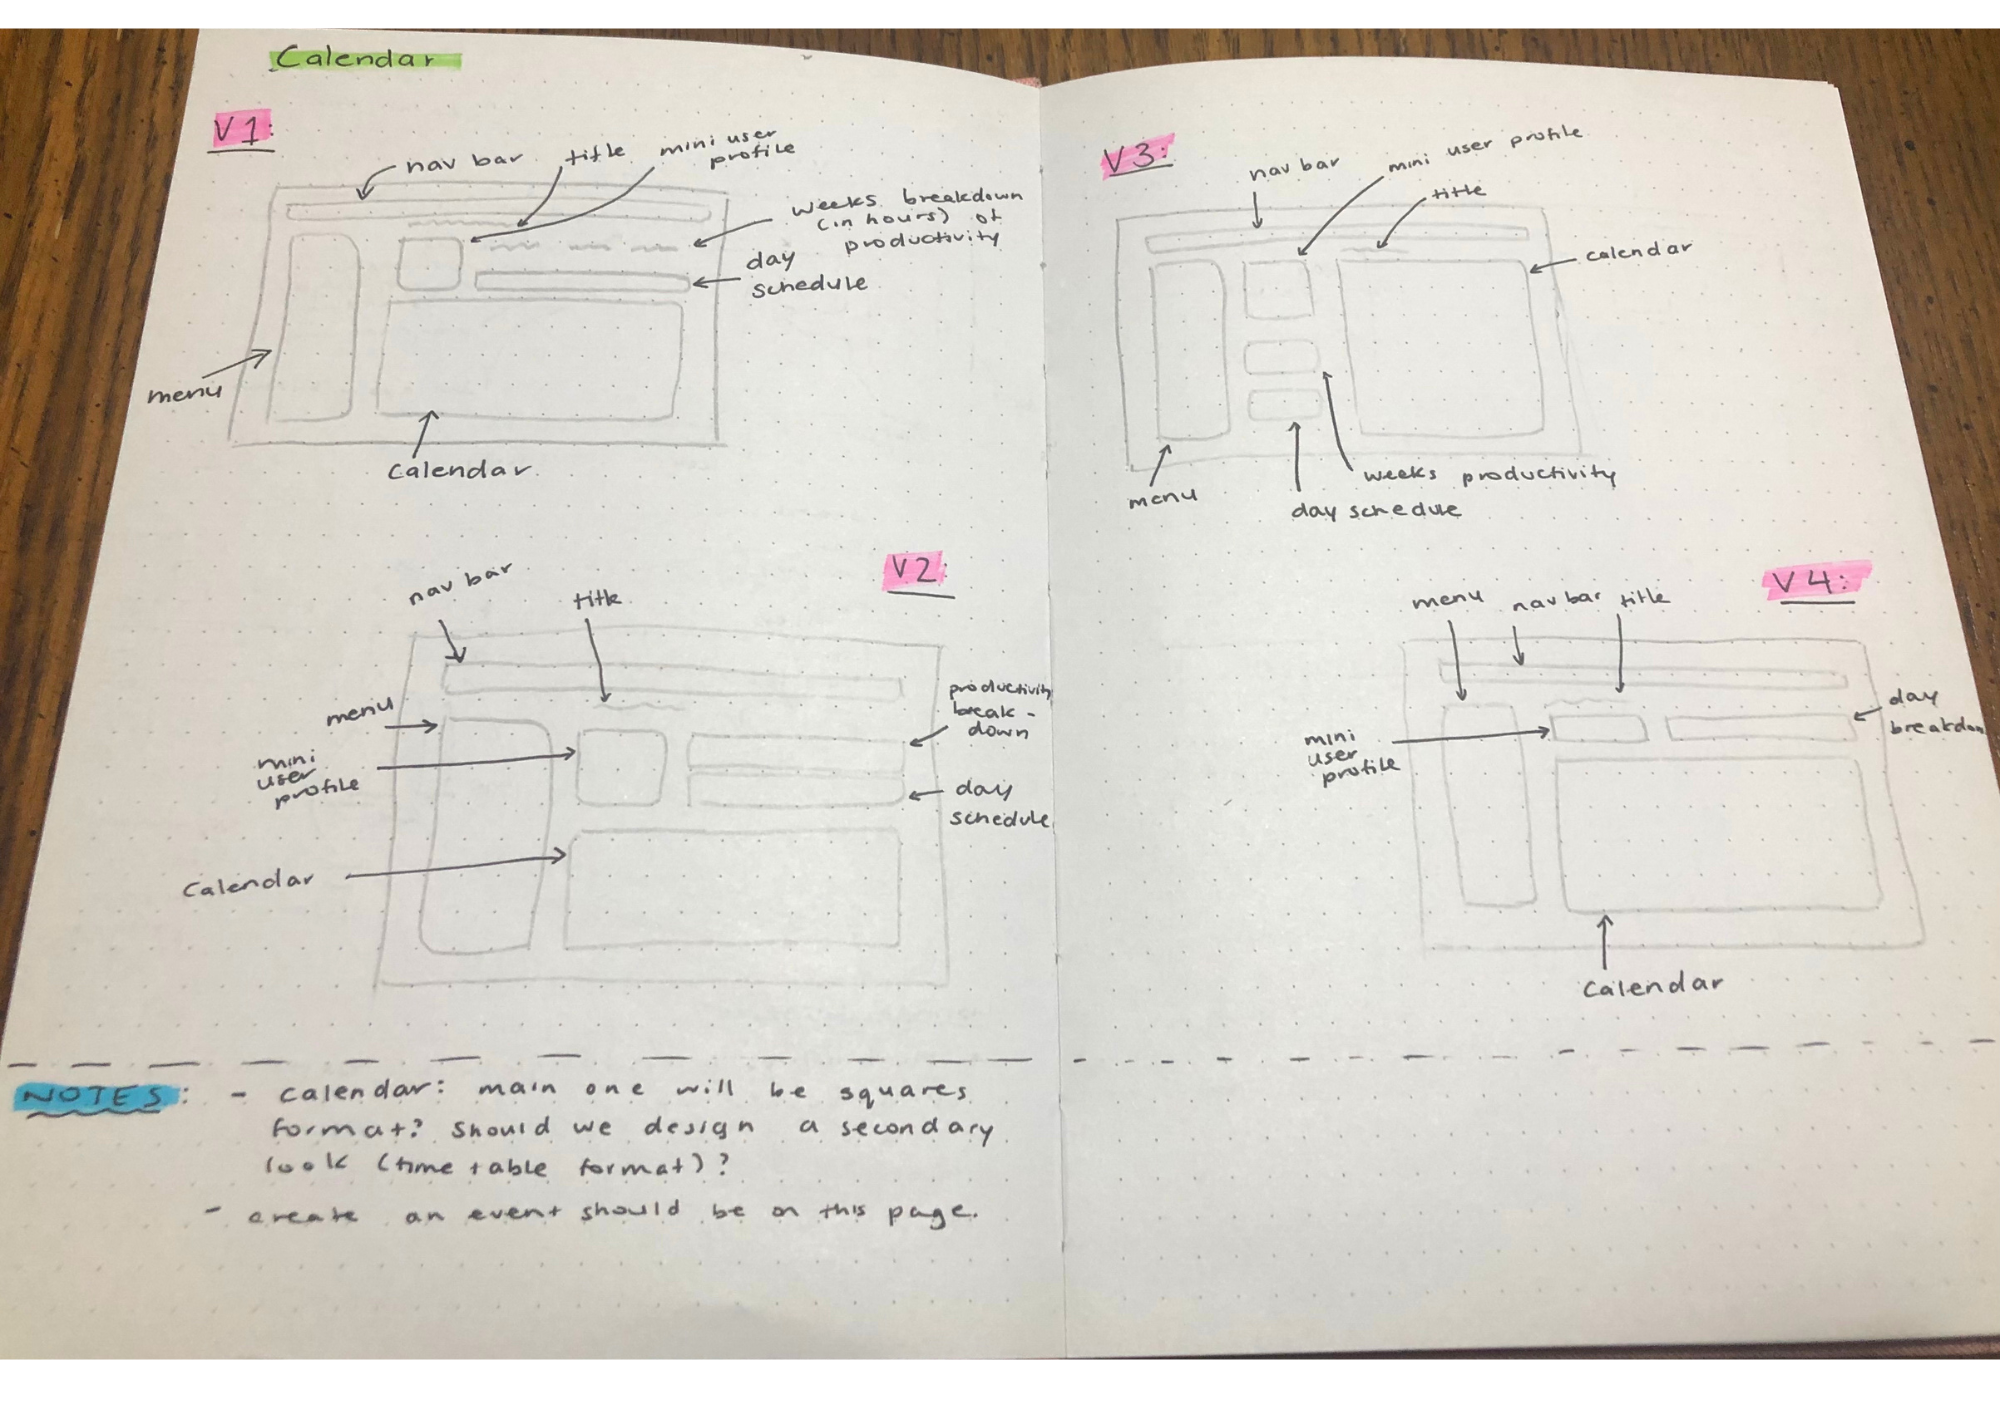 Calendar
V1:
nav bar
title
mini user
profile
weeks breakdown
(in hours) of
productivity
day
schedule
menu
Calendar
V2:
nav bar
title
menu
mini
user
profile
productivity
break-
down
day
schedule
Calendar
V3:
nav bar
mini user profile
title
calendar
menu
weeks productivity
day schedule
V4:
menu
nav bar
title
mini
user
profile
day
breakdown
Calendar
NOTES: - Calendar: main one will be squares
format? should we design a secondary
look (time table format)?
- create an event should be on this page.